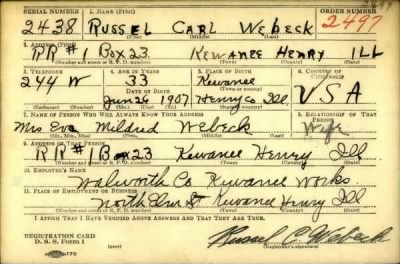 SERIAL NUMBER 1. NAME (Print) ORDER NUMBER
2438 RUSSEL CARL WEBECK 2497
(First) (Middle) (Last)
2. ADDRESS (Print)
RR #1 Box 23 KEWANEE HENRY ILL
(Number and street or R. F. D. number) (Town) (County) (State)
3. TELEPHONE 4. AGE IN YEARS 5. PLACE OF BIRTH 6. COUNTRY OF CITIZENSHIP
244 W 33 Kewanee
DATE OF BIRTH (Town or county)
June 26 1907 Henry Co Ill USA
(Exchange) (Number) (Mo.) (Day) (Yr.) (State or country)
7. NAME OF PERSON WHO WILL ALWAYS KNOW YOUR ADDRESS 8. RELATIONSHIP OF THAT PERSON
Mrs Eva Mildred Webeck Wife
(Mr., Mrs., Miss) (First) (Middle) (Last)
9. ADDRESS OF THAT PERSON
RR #1 Box 23 Kewanee Henry Ill
(Number and street or R. F. D. number) (Town) (County) (State)
10. EMPLOYER'S NAME
Walworth Co Kewanee Works
11. PLACE OF EMPLOYMENT OR BUSINESS
North Elm St Kewanee Henry Ill
(Number and street or R. F. D. number) (Town) (County) (State)
I AFFIRM THAT I HAVE VERIFIED ABOVE ANSWERS AND THAT THEY ARE TRUE.
REGISTRATION CARD
D. S. S. Form 1 (over) Russel C Webeck
(Registrant's signature)